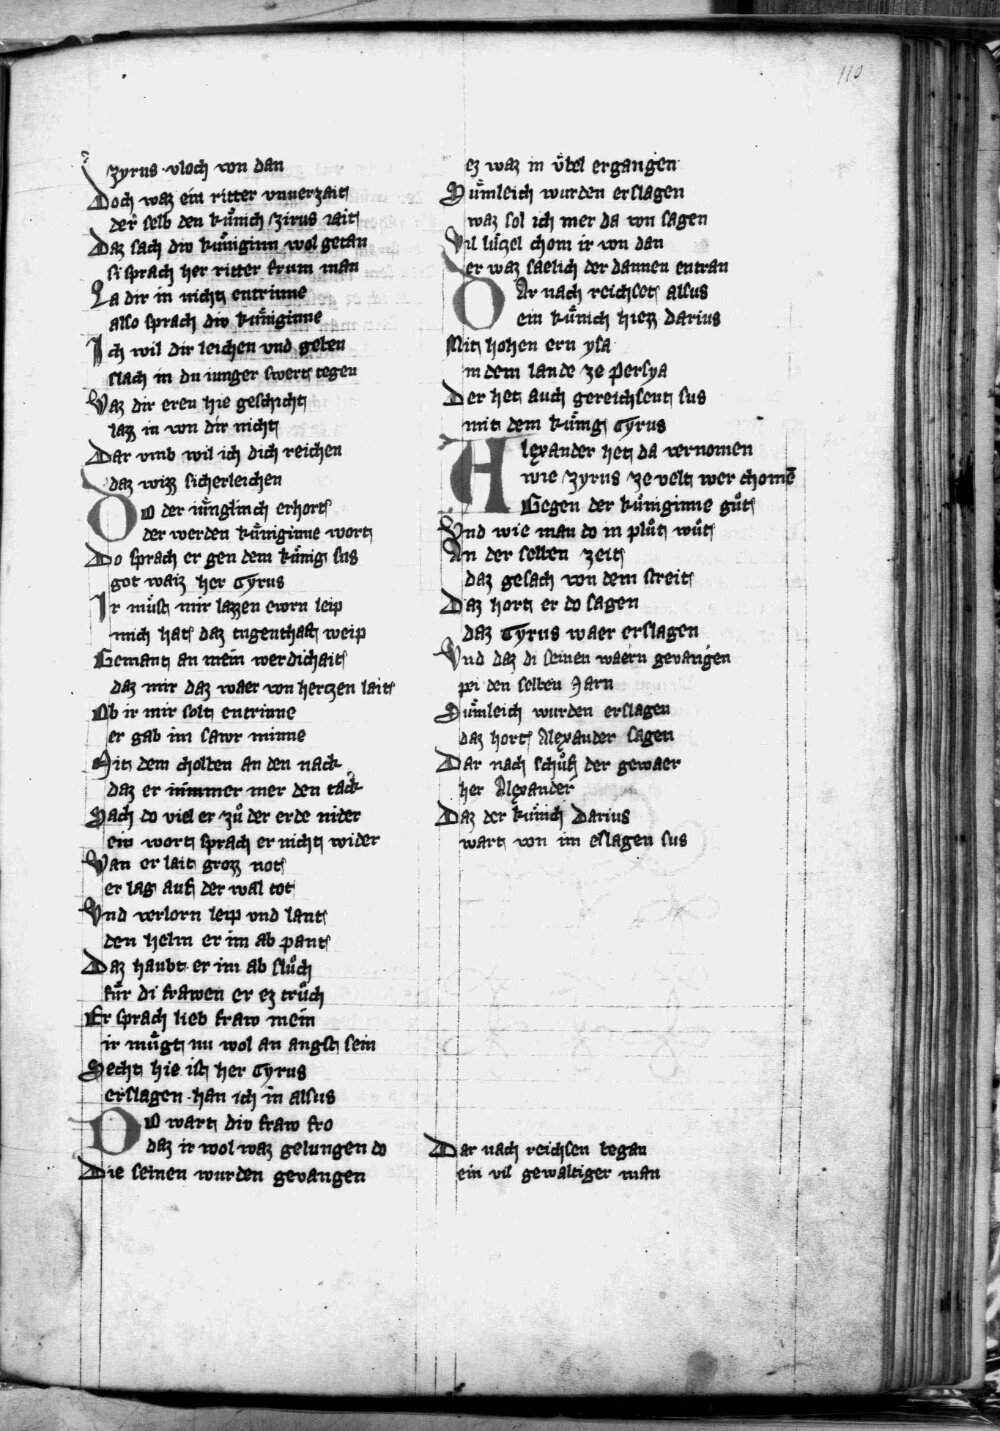 110
Zyrus vloch von dan
Doch waz ein ritter vnuerzait
der selb den kuͤnich Zirus iait
Daz sach div kuͤniginn wol getan
si sprach her ritter frum man
La dir in nicht entrinne
also sprach div kuͤniginne
Ich wil dir leichen vnd geben
slach in du iunger swert tegen
Waz dir eren hie geschicht
lazz in von dir nicht
Dar vmb wil ich dich reichen
daz wizz sicherleichen
Do der iuͤnglinch erhort
der werden kuͤniginne wort
Do sprach er gen dem kuͤnig sus
got waiz her Tyrus
Ir muͤst mir lazzen ewrn leip
mich hat daz tugenthaft weip
Gemant an mein werdichait
daz mir daz waer von hertzen lait
Ob ir mir solt entrinne
er gab im sawr minne
Mit dem cholben an den nack
daz er nimmer mer den tack
Sach do viel er zuͦ der erde nider
ein wort sprach er nicht wider
Wan er lait grozz not
er lag auf der wal tot
Vnd verlorn leip vnd lant
den helm er im ab pant
Daz haubt er im ab sluͦch
fuͤr di frawen er ez truͦch
Er sprach lieb fraw mein
ir muͤgt nu wol an angst sein
Secht hie ist her Tyrus
erslagen han ich in alsus
Do wart div fraw fro
daz ir wol waz gelungen do
Die seinen wurden gevangen
ez waz in vͤbel ergangen
Suͤmleich wurden erslagen
waz sol ich mer da von sagen
Vil luͤtzel chom ir von dan
er waz saelich der dannen entran
Dar nach reichset alsus
ein kuͤnich hiezz Darius
Mit hohen ern ysa
in dem lande ze persya
Der het auch gereichsent sus
mit dem kuͤnig Tyrus
Alexander het da vernomen
wie Zyrus ze velt wer chomē
Gegen der kuͤniginne guͦt
Vnd wie man do in pluͦt wuͦt
An der selben zeit
daz gesach von dem streit
Daz hort er do sagen
daz Tyrus waer erslagen
Vnd daz di seinen waern gevangen
pei den selben Jarn
Suͤmleich wurden erslagen
daz hort Alexander sagen
Dar nach schuͦf der gewaer
her Alexander
Daz der kuͤnich Darius
wart von im eslagen sus
Dar nach reichsen began
ein vil gewaltiger man